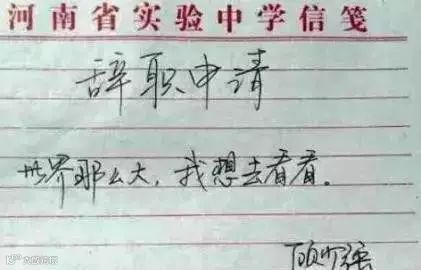 河南省实验中学信笺
辞职申请
世界那么大，我想去看看。
顾少强